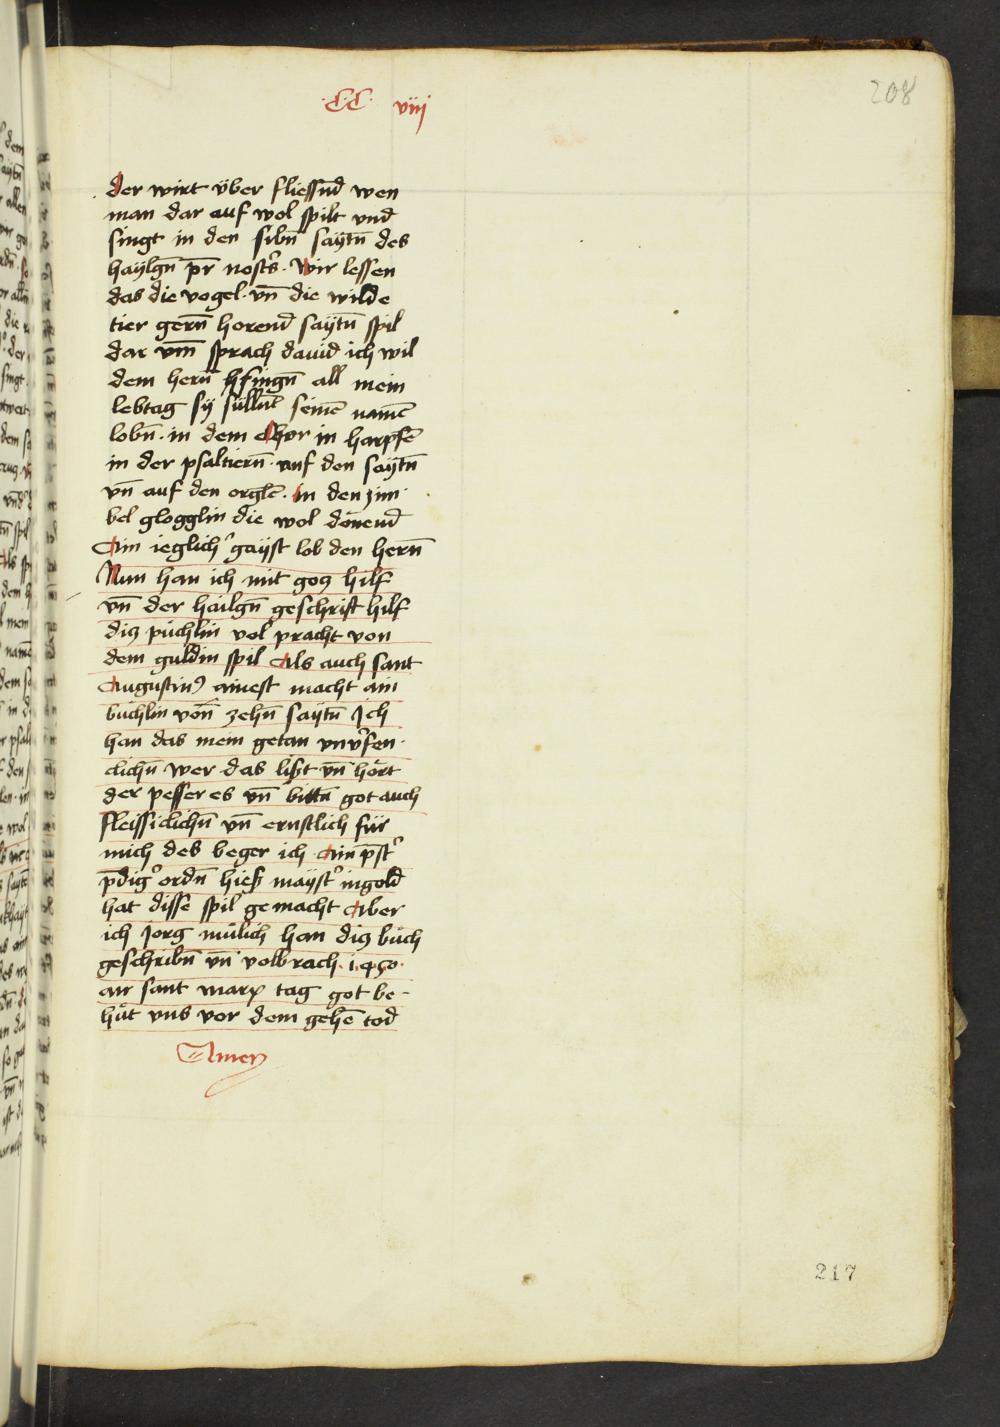 .CC. viij
208
der wirt über fliessnd wen
man dar auf wol spilt vnd
singt in den sibñ saÿtñ des
haÿlgñ pr̄ nostˀs. Wir lessen
das die vogel. vn̄ die wilde
tier gerñ horend saÿtñ spil
dar vm̄ sprach dauid ich wil
dem herñ singñ all mein
lebtag sÿ süllñt seinē namē
lobñ. in dem Chor in harpfē
in der psaltierñ. auf den saÿtñ
vn̄ auf den orglē. In den zim
bel glogglin die wol dönend
Ain ieglichˀ gaÿst lob den herñ
Nun han ich mit gotz hilf
vn̄ der hailgñ geschrift hilf
ditz püchlin vol pracht von
dem guldin spil Als auch sant
Augustinꝰ ainest macht ain
büchlin von̄ zehñ saÿtñ Ich
han das mein getan
clichñ wer das lißt vn̄ hört
der pesser es vn̄ bittñ got auch
fleissiclichñ vn̄ ernstlich für
mich des beger ich Ain pstˀ
pdigˀ ordñ hieß maÿstˀ ingold
hat disse spil gemacht Aber
ich Jorg mülich han ditz büch
geschribñ vn̄ volbrach. 1450.
an sant marx tag got be-
hüt vns vor dem gehē tod
Amen
217